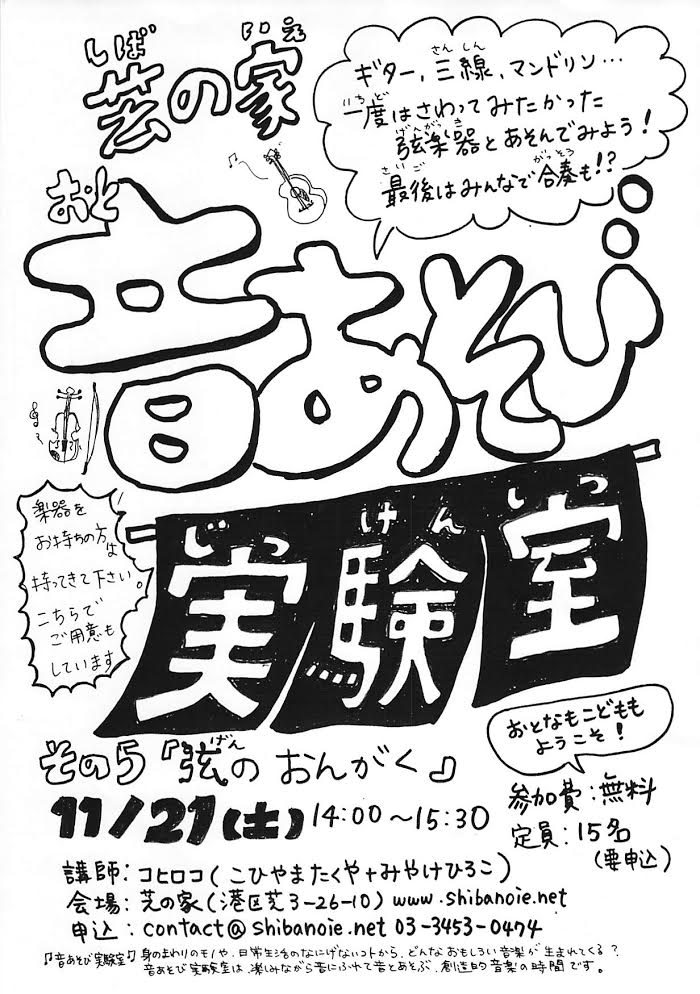 しば いえ
芸の家
ギター、三線、マンドリン…
さんしん
一度はさわってみたかった
いちど
弦楽器とあそんでみよう!
げんがっき
最後はみんなで合奏も!?
さいご がっそう
おと
音あそび
じっ けん しつ
実験室
楽器を
お持ちの方は
持ってきて下さい。
こちらで
ご用意も
しています
その5『弦の おんがく』
げん
おとなもこどもも
ようこそ!
11/21(土) 14:00〜15:30
参加費:無料
定員:15名
(要申込)
講師:コヒロコ(こひやまたくや+みやけひろこ)
会場:芝の家(港区芝3-26-10) www.shibanoie.net
申込:contact@shibanoie.net 03-3453-0474
♫音あそび実験室♫ 身のまわりのモノや、日常生活のなにげないコトから、どんなおもしろい音楽が生まれてくる?
音あそび実験室は、楽しみながら音にふれて音とあそぶ、創造的音楽の時間です。